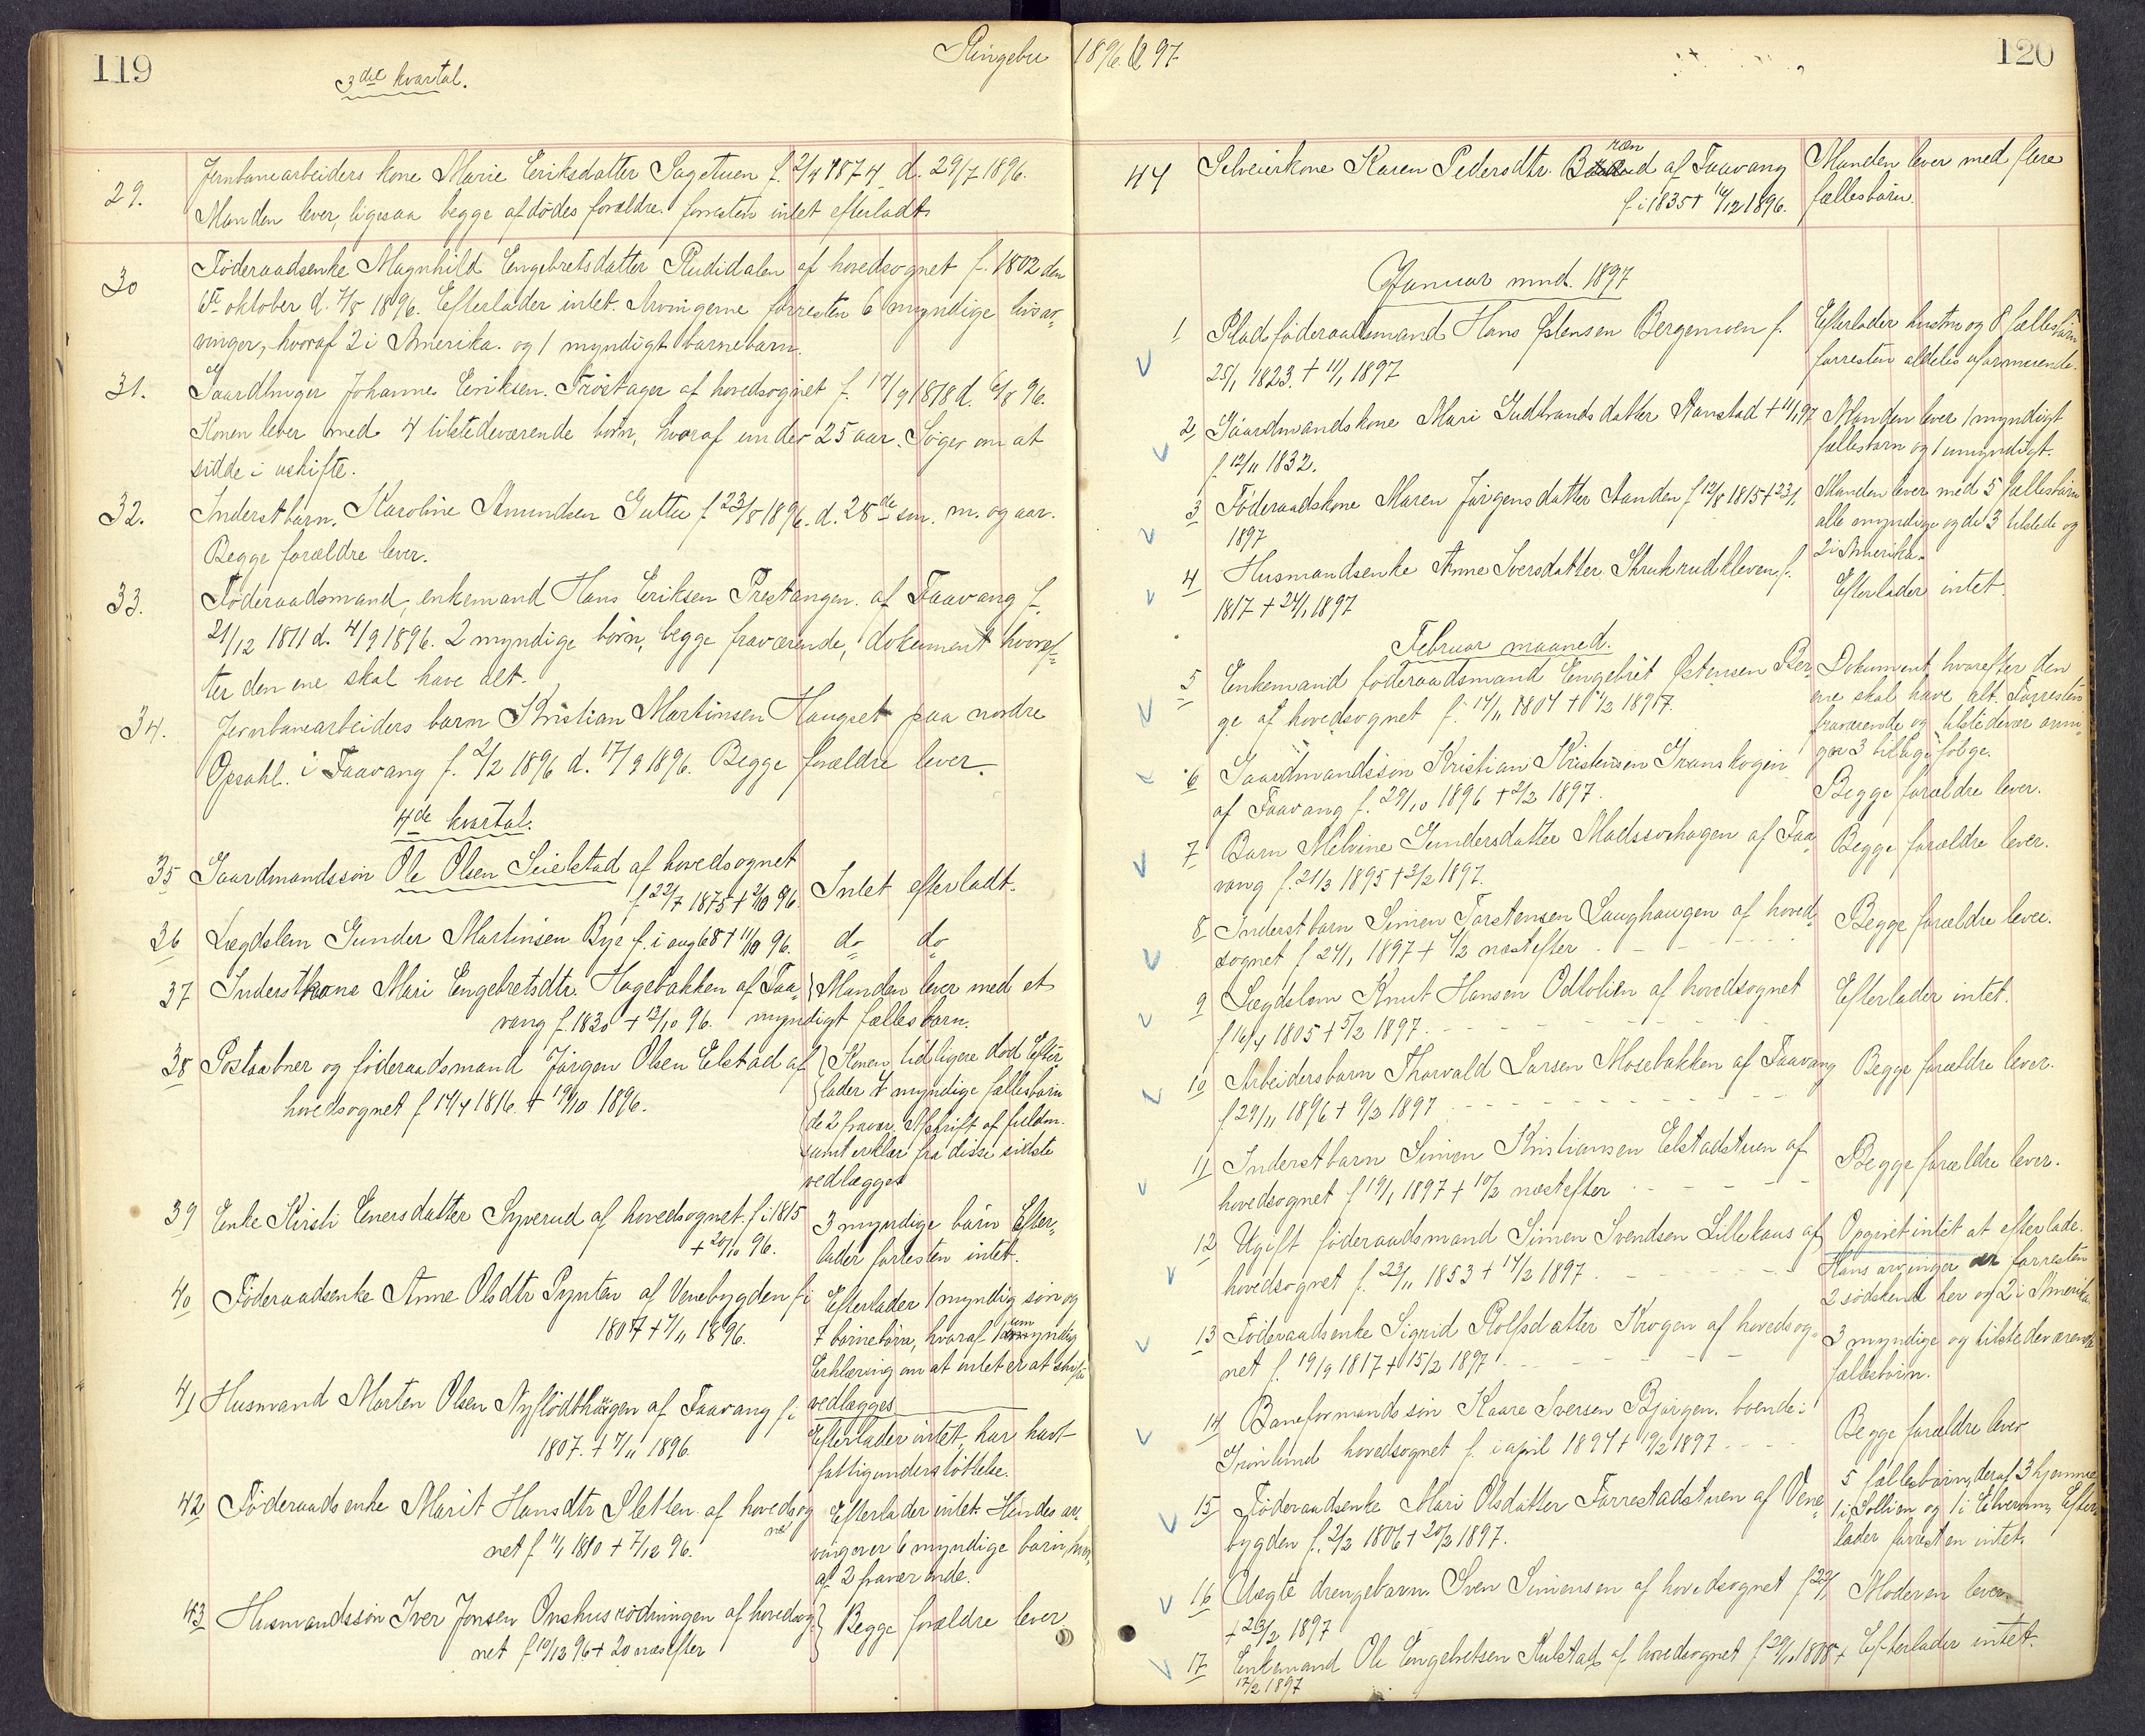 119
3die kvartal.
Ringebu
29.
Jernbanearbeiders kone Marie Eriksdatter Sagstuen f. 2/4 1874 d. 29/7 1896.
Manden lever, ligesaa begge afdødes forældre. forresten intet efterladt
30
Føderaadsenke Magnhild Engebretsdatter Rudidalen af hovedsognet f. 1802 den
oktober d. 7/8 1896. Efterlader intet. Arvingerne forresten 6 myndige livsar-
vinger, hvoraf 2 i Amerika. og 1 myndigt barnebarn.
31.
Gaardbruger Johannes Eriksen Trøstager af hovedsognet f. 17/9 1818 d. 6/8 96.
Konen lever med 4 tilstedeværende børn, hvoraf under 25 aar. Søger om at
sidde i uskifte.
32.
Inderstbarn. Karoline Amundsen Guttu f. 23/8 1896. d. 28de sm. m. og aar.
Begge forældre lever.
33.
Føderaadsmand, enkemand Hans Eriksen Prestangen af Faavang f.
21/12 1811 d. 4/9 1896. 2 myndige børn, begge fraværende, dokument hvoref-
ter den ene skal have alt.
34.
Jernbanearbeiders barn Kristian Martinsen Haugset paa nordre
Opsahl i Faavang f. 2/2 1896 d. 17/9 1896. Begge forældre lever.
4de kvartal.
35 Gaardmandssøn Ole Olsen Seielstad af hovedsognet
f 22/7 1875 + 2/10 96. Intet efterladt.
36 Lægdslem Gunder Martinsen Bye f. i aug 68 + 11/10 96. do do
37 Inderstkone Mari Engebretsdtr. Hagebakken af Faa- Manden lever med et
vang f. 1830 + 13/10 96. myndigt fællesbarn.
38 Postaabner og føderaadsmand Jørgen Olsen Elstad af Konen tidligere død Efter
hovedsognet f 14/4 1816. + 19/10 1896.
lader 4 myndige fællesbørn
de 2 fravær. Afskrift af
samt erklær fra disse sidste
vedlægges
39 Enke Kirsti Enersdatter Syverud af hovedsognet. f i 1815 3 myndige børn Efter-
+ 20/10 96. lader forresten intet.
40 Føderaadsenke Anne Olsdtr Pynten af Venebygden f i Efterlader 1 myndig søn og
1807 + 7/11 1896. 7 børnebørn, hvoraf 1 umyndig
Erklæring om at intet er at skifte
vedlægges
41 Husmand Morten Olsen Nyflødthaugen af Faavang f. i
1807. + 7/11 1896. Efterlader intet, har havt
fattigunderstøttelse.
42 Føderaadsenke Marit Hansdtr Sletten af hovedsog Efterlader intet. Hendes ar-
net f 11/1 1810 + 7/12 96. vinger er 6 myndige børn, hvor-
af 2 fraværende.
43 Husmandssøn Iver Jonsen Onshusrødningen af hovedsog Begge forældre lever
net f 10/12 96 + 20 næstefter
1896. & 97
120
44 Selveierkone Karen Pedersdtr. B ræn d af Faavang Manden lever med flere
f i 1835 + 14/12 1896. fællesbørn.
Januar mnd. 1897
1 Pladsføderaadsmand Hans Østensen Bergemoen f. Efterlader hustru og 8 fællesbørn
25/1 1823. + 11/1 1897 forresten aldeles uformuende.
2 Gaardmandskone Mari Gudbrandsdatter Aanstad + 11/1 97 Manden lever 1 myndigt
f 12/11 1832. fællesbarn og 1 umyndigt.
3 Føderaadskone Maren Jørgensdatter Aanden f 12/8 1815 + 23/1 Manden lever med 5 fællesbørn
1897 alle myndige og de 3 tilstede og
2 i Amerika.
4 Husmandsenke Anne Iversdatter Skrukrudkleven f. Efterlader intet.
1817 + 24/1 1897
Februar maaned.
5 Enkemand føderaadsmand Engebret Østensen Ber- Dokument, hvorefter den
ge af hovedsognet f. 14/11 1804 + 1/2 1897. ene skal have alt. Forresten
fraværende og tilstedevær arvin-
ger 3 tillige følge.
6 Gaardmandssøn Kristian Kristensen Granskogen
af Faavang f. 29/10 1896 + 2/2 1897. Begge forældre lever.
7 Barn Melvine Gundersdatter Madssvehagen af Faa- Begge forældre lever.
vang f. 21/3 1895 + 3/2 1897.
8 Inderstbarn Simen Torstensen Laughaugen af hoved- Begge forældre lever.
sognet f 24/1 1897 + 4/2 næstefter
9 Lægdslem Knut Hansen Odlolien af hovedsognet Efterlader intet.
f 16/4 1805 + 5/2 1897.
10 Arbeidersbarn Thorvald Larsen Mosebakken af Faavang Begge forældre lever.
f 29/11 1896 + 9/2 1897
11 Inderstbarn Simen Kristiansen Elstadstuen af Begge forældre lever.
hovedsognet f 19/1 1897 + 10/2 næstefter
12 Ugift føderaadsmand Simen Svendsen Lillekaus af Opgivet intet at efterlade.
hovedsognet f. 23/11 1853 + 14/2 1897. Hans arvinger er forresten
2 sødskend her og 2 i Amerika.
13 Føderaadsenke Sigrid Rolfsdatter Krogen af hovedsog- 3 myndige og tilstedeværende
net f. 19/9 1817 + 15/2 1897. fællesbørn.
14 Baneformandssøn Kaare Iversen Bjørgen. boende i Begge forældre lever
Grønlund hovedsognet f. i april 1894 + 19/2 1897
15 Føderaadsenke Mari Olsdatter Farrestadstuen af Vene- 5 fællesbørn, deraf 3 hjemme
bygden f. 2/2 1806 + 20/2 1897. 1 i Sollien og 1 i Elverum, Efter-
lader forresten intet.
16 Uægte drengebarn. Sven Simensen af hovedsognet f 22/1 Moderen lever.
+ 23/2 1897
17 Enkemand Ole Engebretsen Kulstad af hovedsognet f 29/10 1808 + Efterlader intet.
17/2 1897